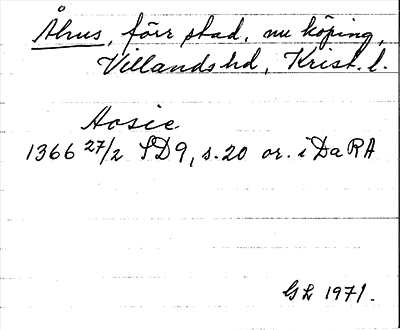 Åhus, förr stad, nu köping,
Villands hd, Krist. l.
Aosie
1366 27/2 SD9, s. 20 or. i Da RA
GL 1971.